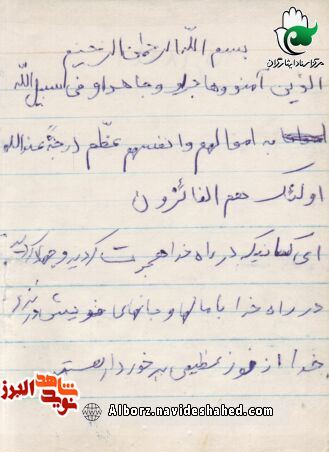 مرکز اسناد ایثارگران
بسم اللّه الرحمان الرحیم
الذین آمنو وهاجرو وجاهدو فی سبیل اللّه
به اموالهم وانفسهم عظّم درجةً عندالله
اولئک هم الفائزون
ای کسانیکه در راه خدا هجرت کردید و جهاد کردید
در راه خدا با مالها و جانهای خویش در نزد
خدا از فوز عظیمی برخوردار هستید
نوید شاهد البرز
Alborz.navideshahed.com